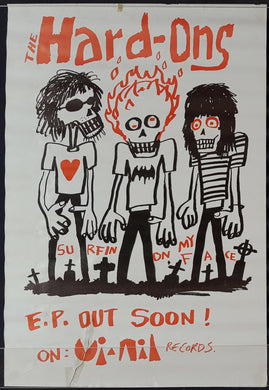 THE Hard-Ons
SURFIN ON MY FACE
E.P. OUT SOON!
ON: ViNiL RECORDS.